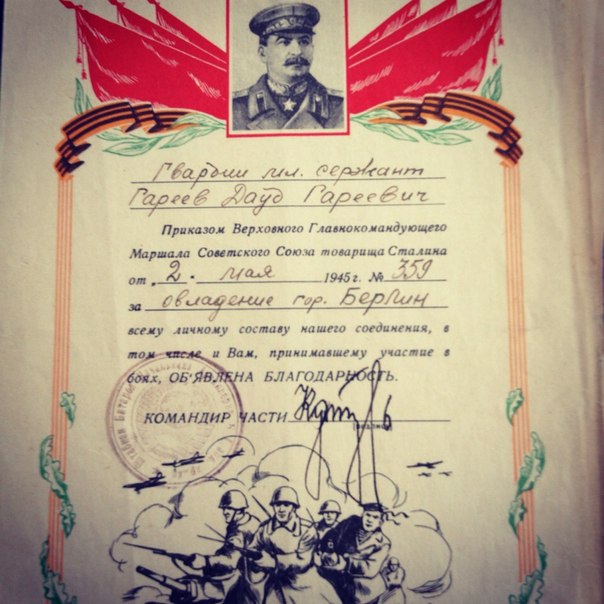 Гвардии мл. сержант
Гареев Дауд Гареевич
Приказом Верховного Главнокомандующего
Маршала Советского Союза товарища Сталина
от „2“ мая 1945 г. № 359
за овладение гор. Берлин
всему личному составу нашего соединения, в
том числе и Вам, принимавшему участие в
боях, ОБ'ЯВЛЕНА БЛАГОДАРНОСТЬ.
КОМАНДИР ЧАСТИ